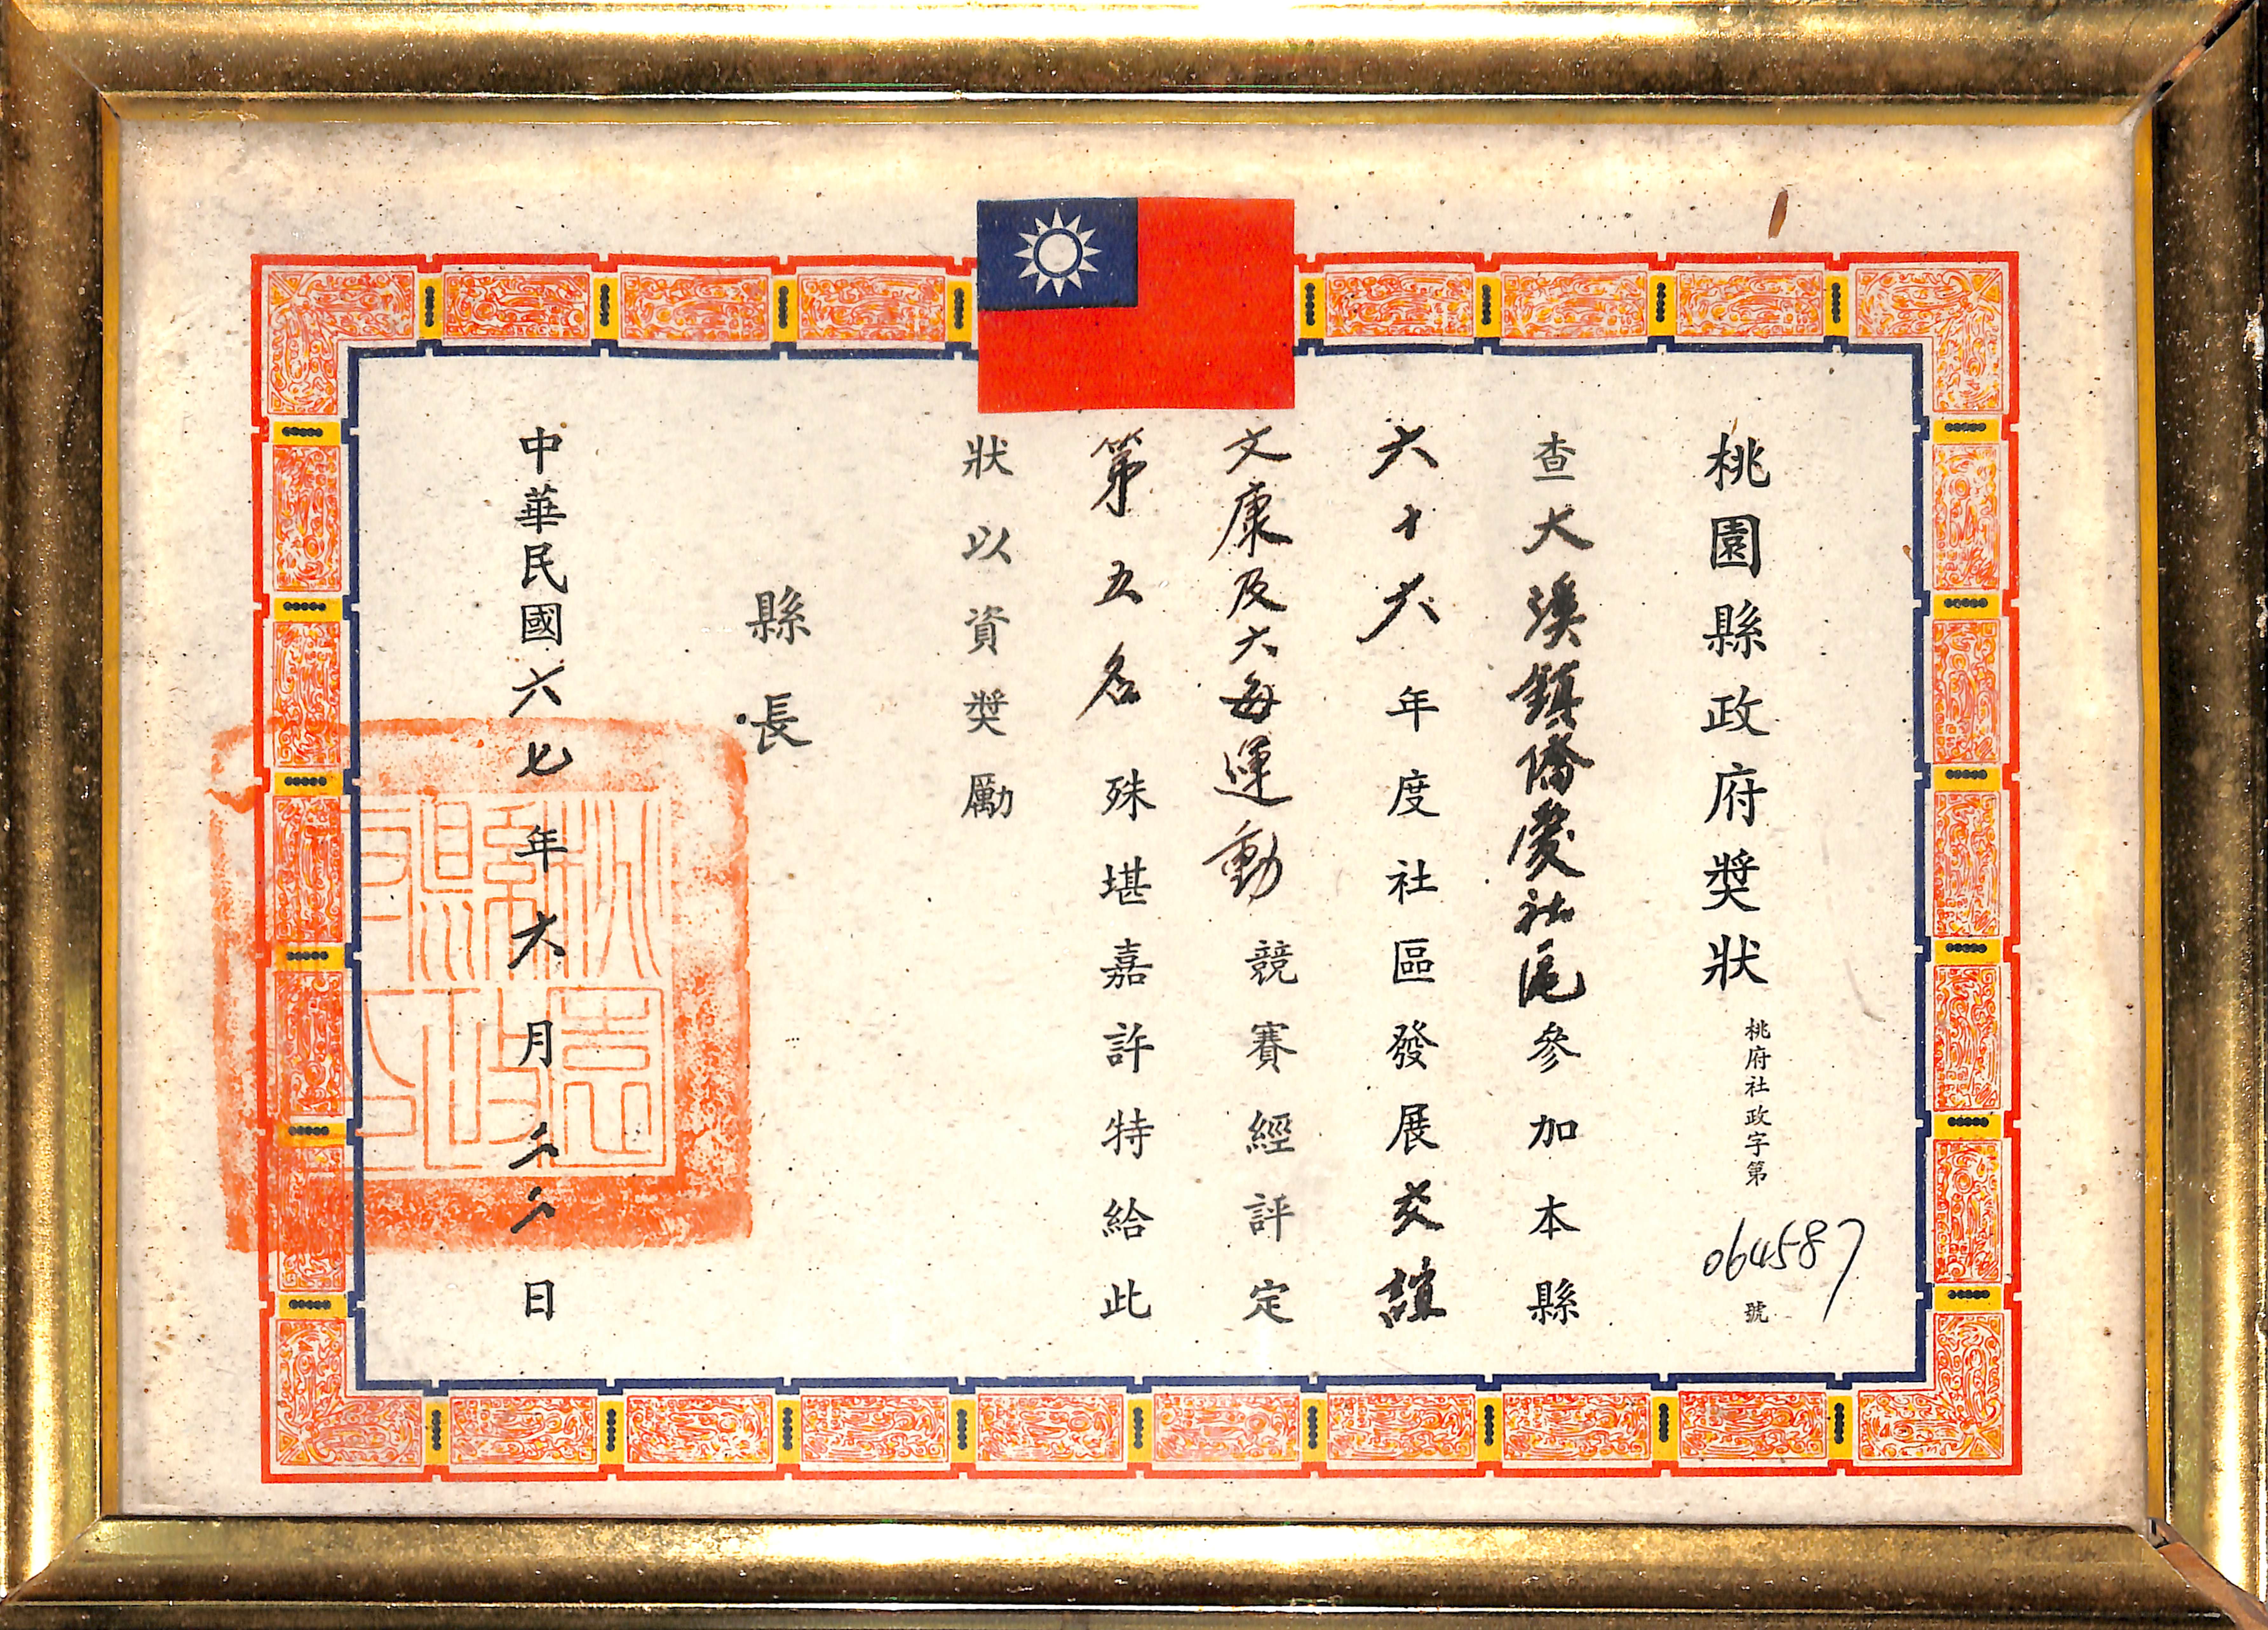 桃園縣政府獎狀
桃府社政字第064587號
查大溪鎮僑愛社區參加本縣
六十六年度社區發展交誼
文康及六每運動競賽經評定
第五名殊堪嘉許特給此
狀以資獎勵
縣長
中華民國六七年六月日
桃園縣政府印